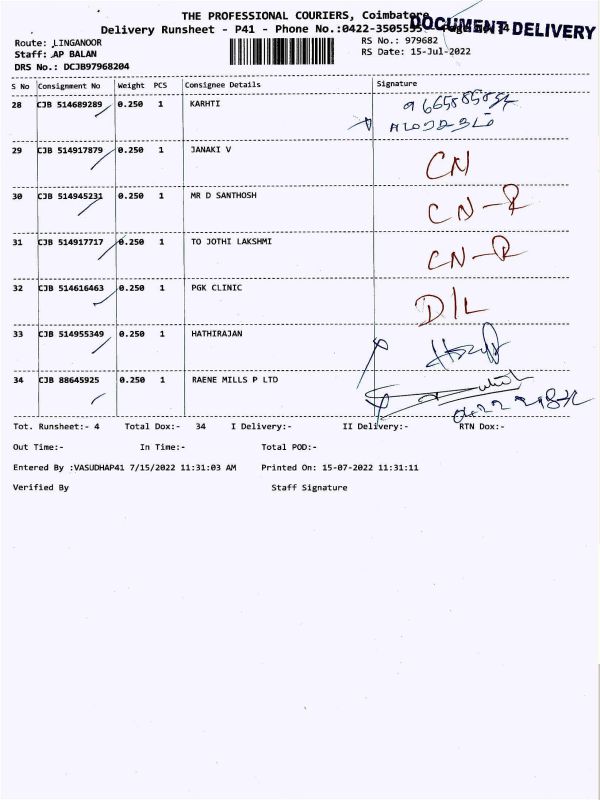 THE PROFESSIONAL COURIERS, Coimbatore
Delivery Runsheet - P41 - Phone No.:0422-3505595
DOCUMENT DELIVERY
Route: LINGANOOR
RS No.: 979682
Staff: AP BALAN
RS Date: 15-Jul-2022
DRS No.: DCJB97968204
S No Consignment No Weight PCS Consignee Details Signature
28 CJB 514689289 0.250 1 KARHTI
29 CJB 514917879 0.250 1 JANAKI V CN
30 CJB 514945231 0.250 1 MR D SANTHOSH CN-R
31 CJB 514917717 0.250 1 TO JOTHI LAKSHMI CN-R
32 CJB 514616463 0.250 1 PGK CLINIC D/L
33 CJB 514955349 0.250 1 HATHIRAJAN
34 CJB 88645925 0.250 1 RAENE MILLS P LTD
Tot. Runsheet:- 4 Total Dox:- 34 I Delivery:- II Delivery:- RTN Dox:-
Out Time:- In Time:- Total POD:-
Entered By :VASUDHAP41 7/15/2022 11:31:03 AM Printed On: 15-07-2022 11:31:11
Verified By Staff Signature